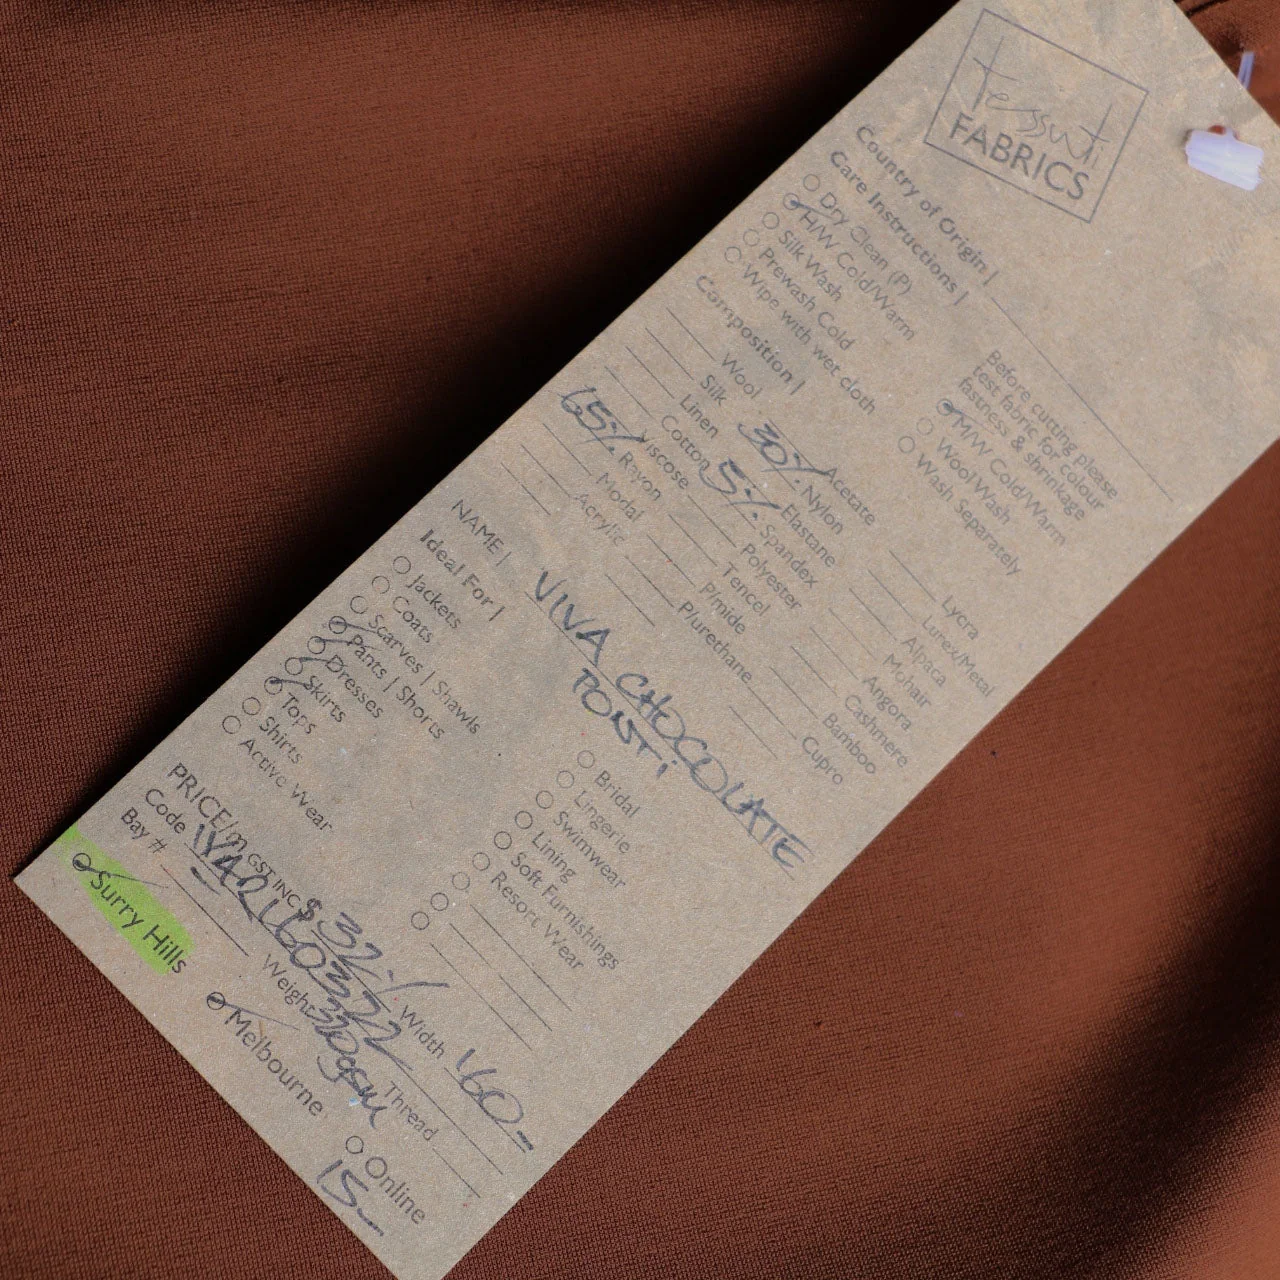 tessuti
FABRICS
Country of Origin |
Care Instructions |
Dry Clean (P)
H/W Cold/Warm
Silk Wash
Prewash Cold
Wipe with wet cloth
Before cutting please
test fabric for colour
fastness & shrinkage
M/W Cold/Warm
Wool Wash
Wash Separately
Composition |
Wool
Silk
Linen
Cotton
65% Viscose
Rayon
Modal
Acrylic
Acetate
30% Nylon
5% Elastane
Spandex
Polyester
Tencel
P/mide
P/urethane
Lycra
Lurex/Metal
Alpaca
Mohair
Angora
Cashmere
Bamboo
Cupro
NAME | VIVA CHOCOLATE
PONTi
Ideal For |
Jackets
Coats
Scarves | Shawls
Pants | Shorts
Dresses
Skirts
Tops
Shirts
Active Wear
Bridal
Lingerie
Swimwear
Lining
Soft Furnishings
Resort Wear
PRICE/m GST INC $32.-/ Width 160-
Code Thread
Bay # Weight 320gsm
Surry Hills
Melbourne
Online
15-